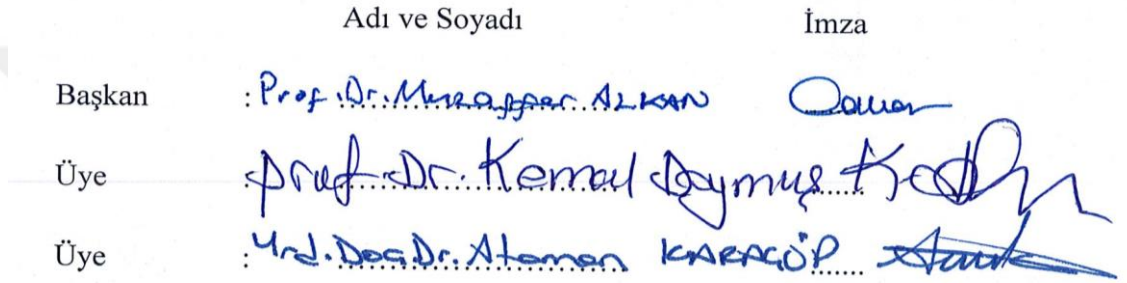 Adı ve Soyadı İmza
Başkan : Prof. Dr. Muzaffer ALKAN
Üye : Prof. Dr. Kemal Doymuş
Üye : Yrd. Doç. Dr. Ataman KARAÇÖP